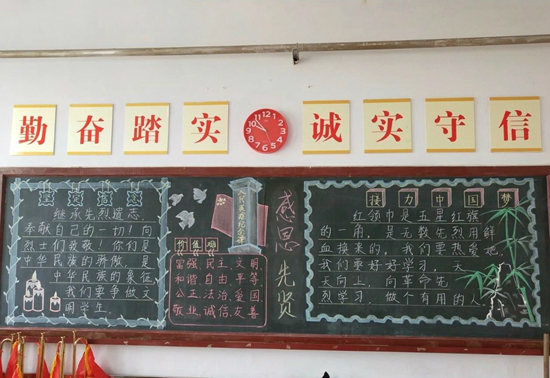 勤奋踏实 诚实守信
继承先烈遗志,
奉献自己的一切!向
烈士们致敬!你们是
中华民族的骄傲,是
中华民族的象征,
我们要争做文
明学生。
人民英雄纪念碑
价值观
富强 民主 文明
和谐 自由 平等
公正 法治 爱国
敬业 诚信 友善
感恩先贤
接力中国梦
红领巾是五星红旗
的一角,是无数先烈用鲜
血换来的,我们要热爱她,
我们要好好学习,天
天向上,向革命先
烈学习,做个有用的人